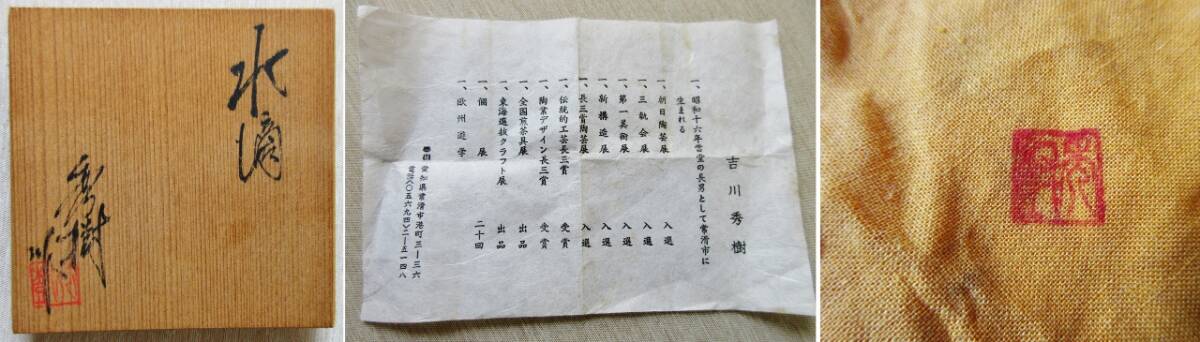 水滴
秀樹
吉川秀樹
一、昭和十六年雪堂の長男として常滑市に
生まれる
一、朝日陶芸展 入選
一、三軌会展 入選
一、第一美術展 入選
一、新構造展 入選
一、長三賞陶芸展 入選
一、伝統的工芸長三賞 受賞
一、陶業デザイン長三賞 受賞
一、全国煎茶具展 出品
一、東海選抜クラフト展 出品
一、個展 二十回
一、欧州遊学
愛知県常滑市港町三ー三六
電話(〇五六九四)二ー五一四八